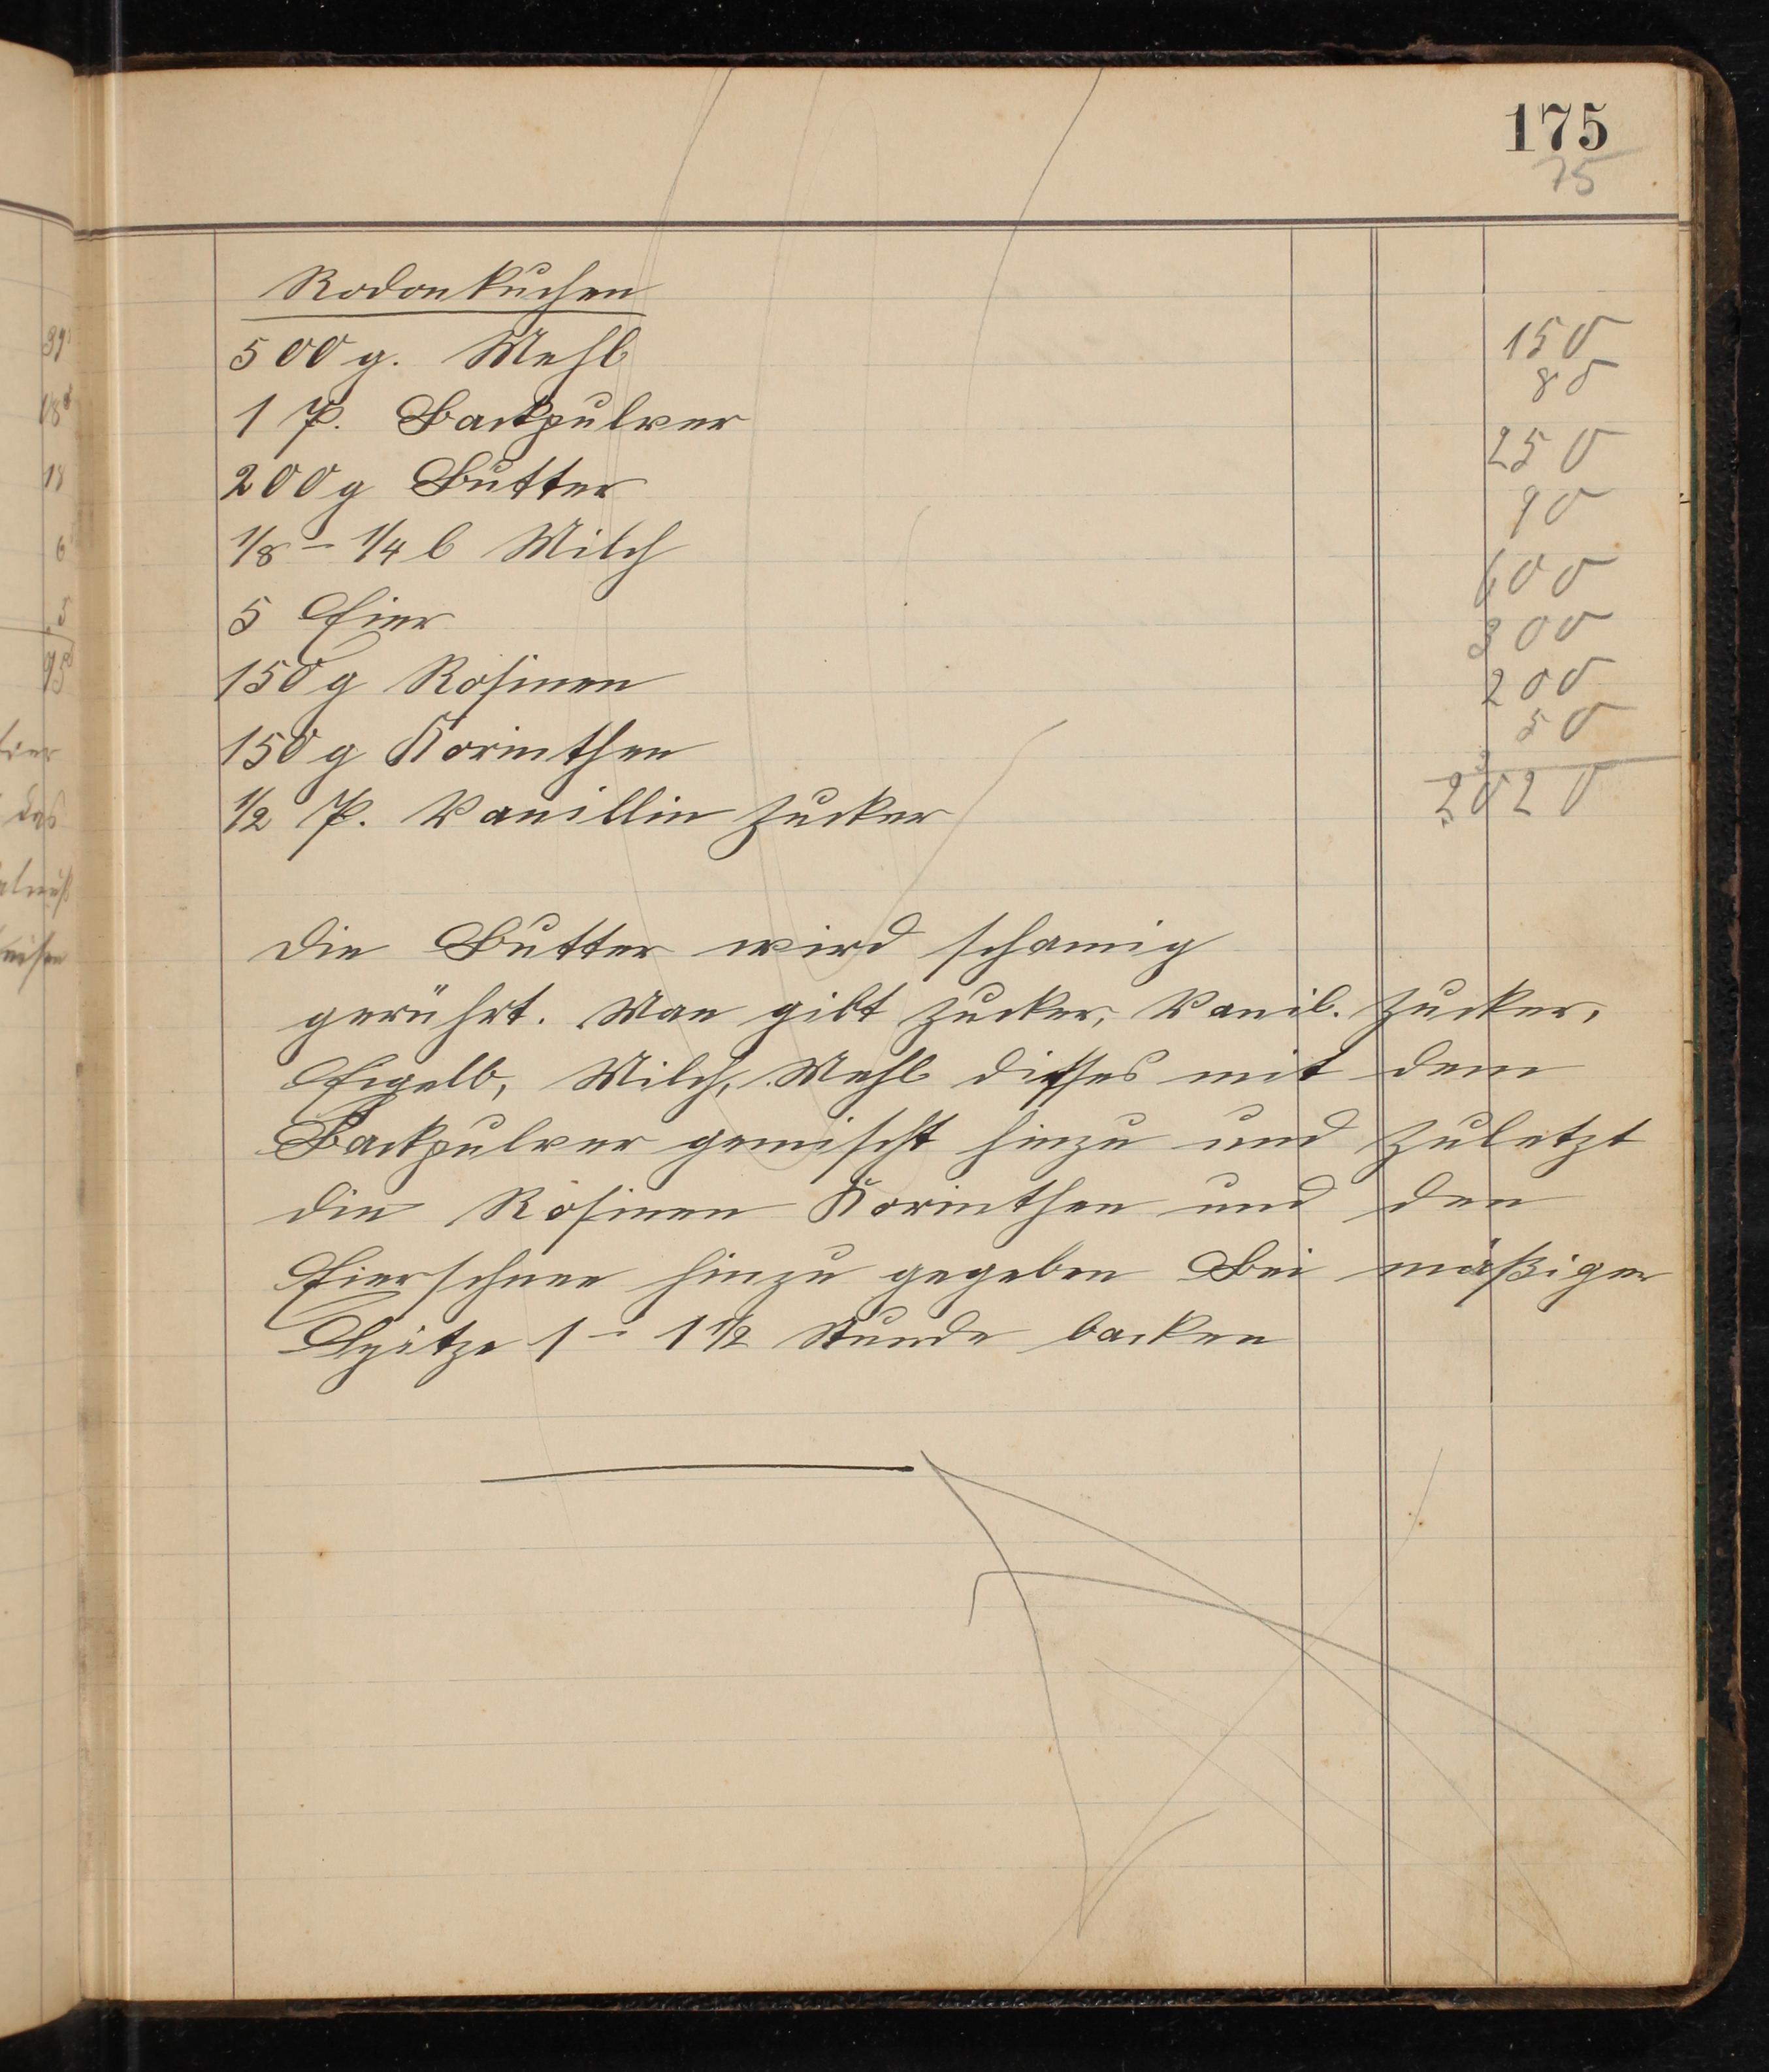 175
75
Rodonkuchen
500 g. Mehl
150
1 P. Backpulver
80
200 g Butter
250
1/8 - 1/4 l Milch
90
5 Eier
600
150 g Rosinen
300
150 g Korinthen
200
1/2 P. Vanillin Zucker
50
2020
Die Butter wird schamig
gerührt. Man gibt Zucker, Vanil. Zucker,
Eigelb, Milch, Mehl disses mit dem
Backpulver gemischt hinzu und zuletzt
die Rosinen Korinthen und den
Eierschnee hinzu gegeben Bei mäßiger
Hitze 1 - 1 1/2 Stunde backen